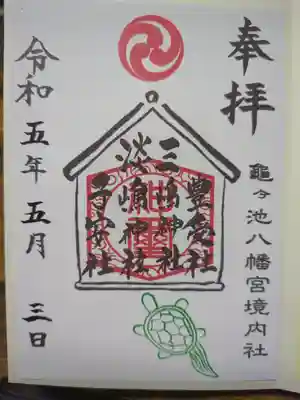 奉拝
亀ヶ池八幡宮境内社
豊受社
三嶋神社
淡嶋神社
子安社
令和五年五月三日